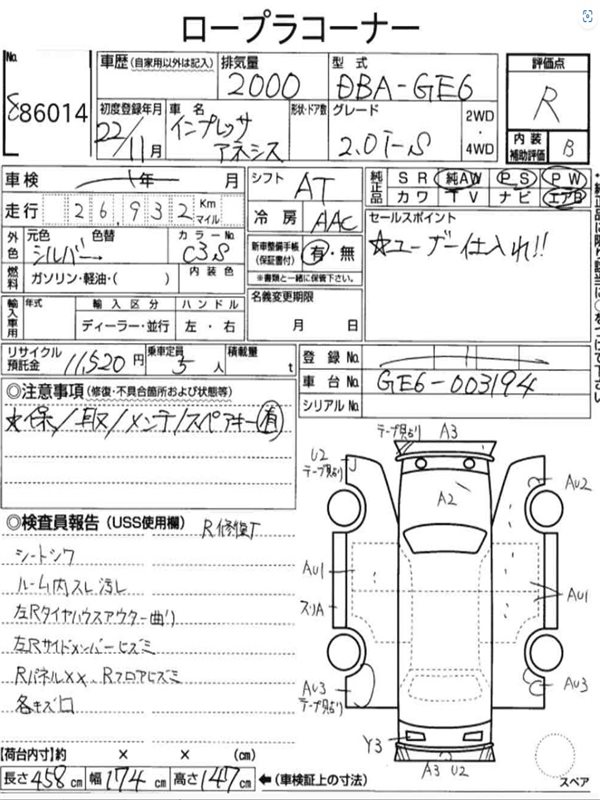 ロープラコーナー
No.
86014
車歴 (自家用以外は記入)
排気量
2000
型式
DBA-GE6
評価点
R
内装
補助評価
B
初度登録年月
22/11月
車名
インプレッサ
アネシス
形状・ドア数
グレード
2.0i-S
2WD
・
4WD
車検 年 月
走行 26,932 Km
マイル
シフト AT
冷房 AAC
純正品
SR 純AW PS PW
カワ TV ナビ エアB
セールスポイント
☆ユーザー仕入れ!!
外色
元色 色替
シルバー→
カラーNo.
C3S
燃料
ガソリン・軽油・( )
内装色
新車整備手帳
(保証書付)
有・無
※書類と一緒に保管下さい。
輸入車用
年式
輸入区分
ディーラー・並行
ハンドル
左・右
名義変更期限
月 日
リサイクル
預託金
11,520円
乗車定員
5人
積載量
t
登録No.
車台No. GE6-003194
シリアルNo.
◎注意事項(修復・不具合箇所および状態等)
☆保/取/メンテ/スペアキー有
◎検査員報告(USS使用欄)
R修復T
シートシワ
ルーム内スレ汚レ
左Rタイヤハウスアウター曲り
左Rサイドメンバーヒズミ
RパネルXX、Rフロアヒズミ
各キズ凹
テープ貼り A3
U2
テープ貼り
A2
AU2
AU1
スリA
AU1
AU3
テープ貼り
AU3
Y3
A3 U2
スペア
【荷台内寸】約 × × (cm)
長さ 458 cm 幅 174 cm 高さ 147 cm ←(車検証上の寸法)